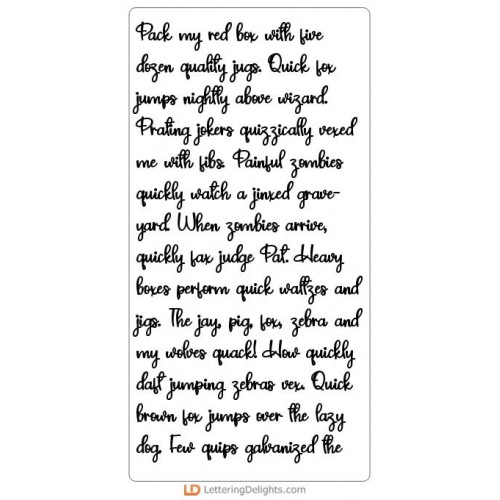 Pack my red box with five
dozen quality jugs. Quick fox
jumps nightly above wizard.
Prating jokers quizzically vexed
me with fibs. Painful zombies
quickly watch a jinxed grave-
yard. When zombies arrive,
quickly fax judge Pat. Heavy
boxes perform quick waltzes and
jigs. The jay, pig, fox, zebra and
my wolves quack! How quickly
daft jumping zebras vex. Quick
brown fox jumps over the lazy
dog. Few quips galvanized the
LD LetteringDelights.com